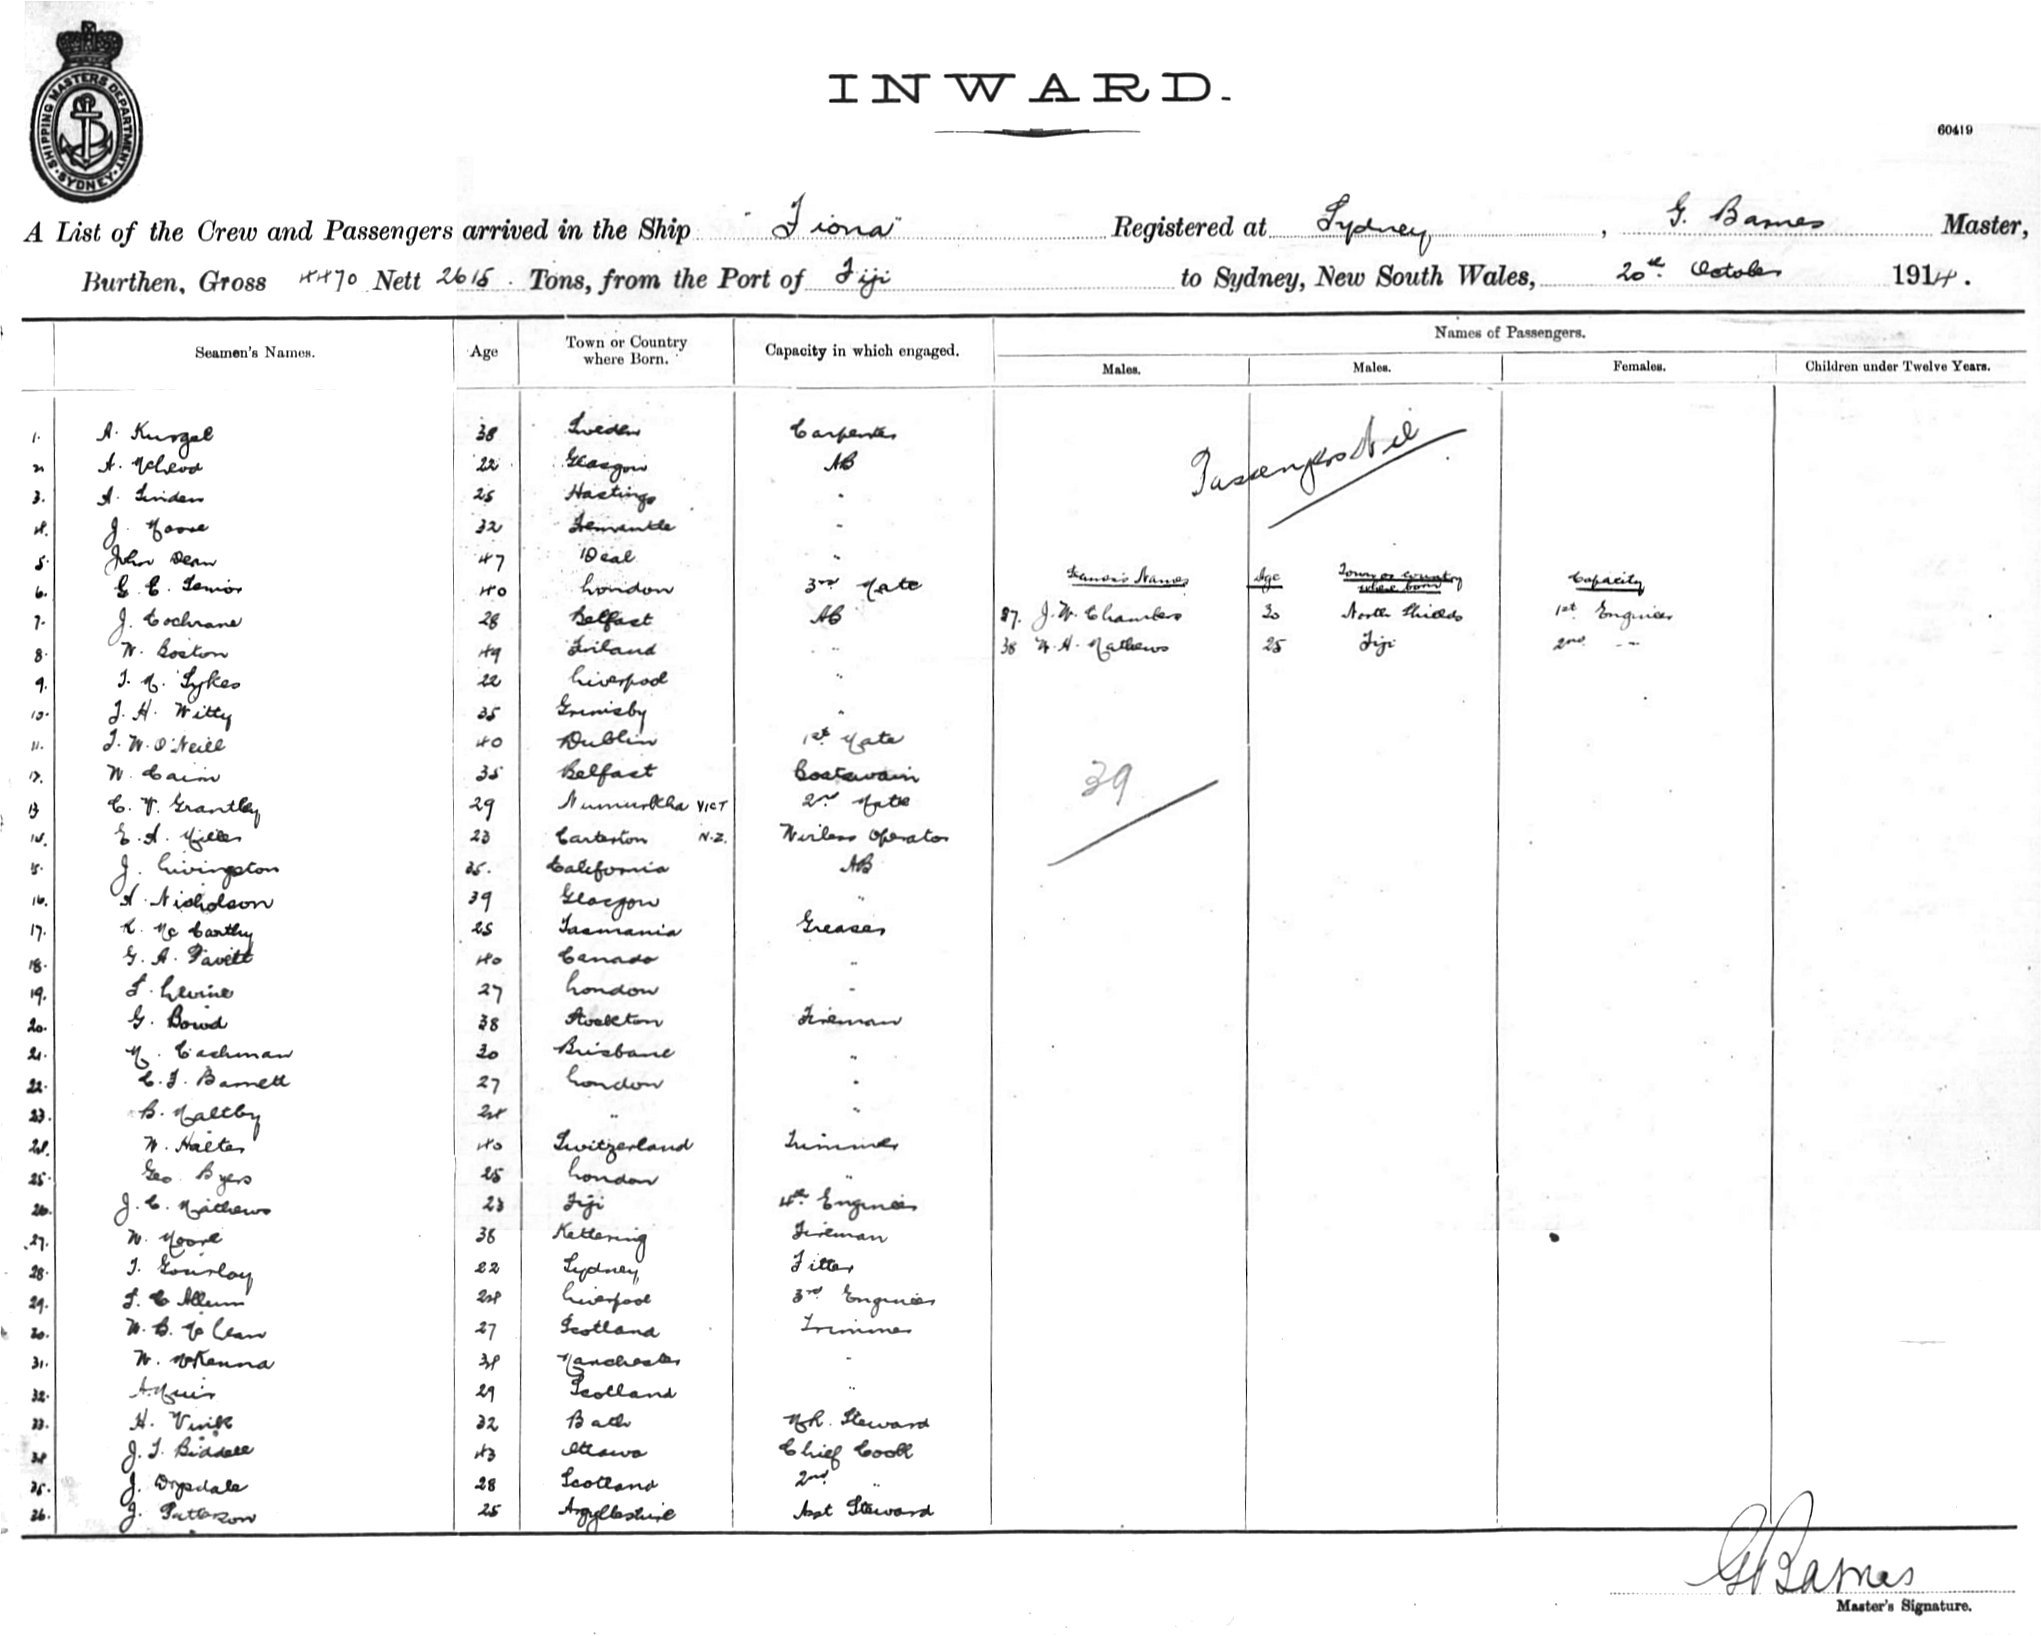 SHIPPING MASTERS DEPARTMENT · SYDNEY ·
INWARD.
60419
A List of the Crew and Passengers arrived in the Ship "Fiona" Registered at Sydney, G. Barnes Master,
Burthen, Gross 4470 Nett 2615. Tons, from the Port of Fiji to Sydney, New South Wales, 20th October 1914.
Seamen's Names. Age Town or Country where Born. Capacity in which engaged. Names of Passengers.
Males. Males. Females. Children under Twelve Years.
Passengers Nil
1. A. Kurgel 38 Sweden Carpenter
2 A. McLeod 22 Glasgow AB
3. A. Linden 25 Hastings "
4. J. Moore 32 Fremantle "
5. John Dean 47 Deal "
6. G. C. Senior 40 London 3rd Mate
7. J. Cochrane 28 Belfast AB
8. W. Boston 49 Finland "
9. T. M. Sykes 22 Liverpool "
10. J. H. Witty 35 Grimsby "
11. J. W. O'Neill 40 Dublin 1st Mate
12. W. Cairn 35 Belfast Boatswain
13 C. V. Grantley 29 Numurkha VICT 2nd Mate
14. E. A. Miller 23 Carterton N.Z. Wireless Operator
15. J. Livingston 35. California AB
16. A. Nicholson 39 Glasgow "
17. R. McCarthy 25 Tasmania Greaser
18. G. A. Pavett 40 Canada "
19. S. Levine 27 London "
20. G. Bowd 38 Stockton Fireman
21. M. Cashman 30 Brisbane "
22. C. F. Barnett 27 London "
23. B. Maltby 24 " "
24. W. Halter 40 Switzerland Trimmer
25. Geo. Byers 25 London "
26. J. C. Mathews 23 Fiji 4th Engineer
27. W. Moore 38 Kettering Fireman
28. T. Gourlay 22 Sydney Fitter
29. S. C Allum 24 Liverpool 3rd Engineer
30. W. B. McClean 27 Scotland Trimmer
31. W. McKenna 34 Manchester "
32. A. Muir 29 Scotland "
33. H. Vink 32 Bath Ch. Steward
34 J. T. Biddell 43 Ottawa Chief Cook
35. J. Drysdale 28 Scotland 2nd "
36. J. Patterson 25 Argylleshire Asst Steward
Seamen's Names Age Town or country where born Capacity
37. J. W. Chambers 30 North Shields 1st Engineer
38 W. H. Mathews 25 Fiji 2nd "
39
G Barnes
Master's Signature.